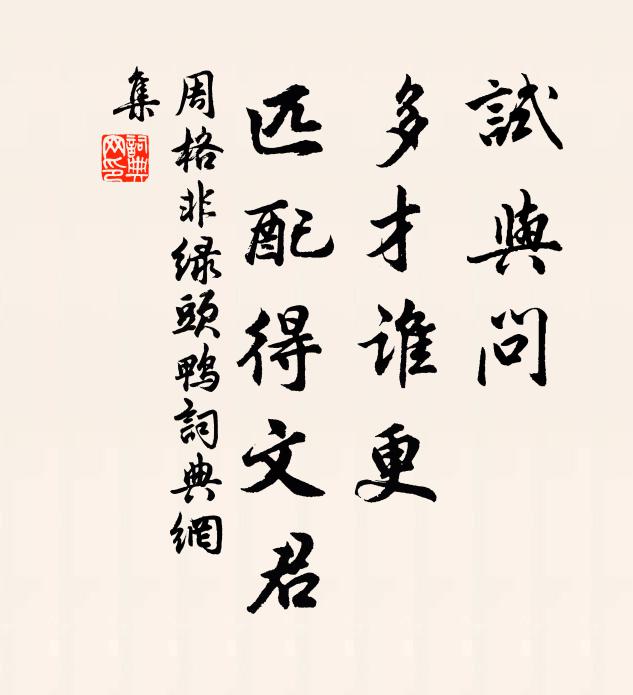 試與問
多才谁更
匹配得文君
周格非緑頭鴨詞典網
集
詞典
网印